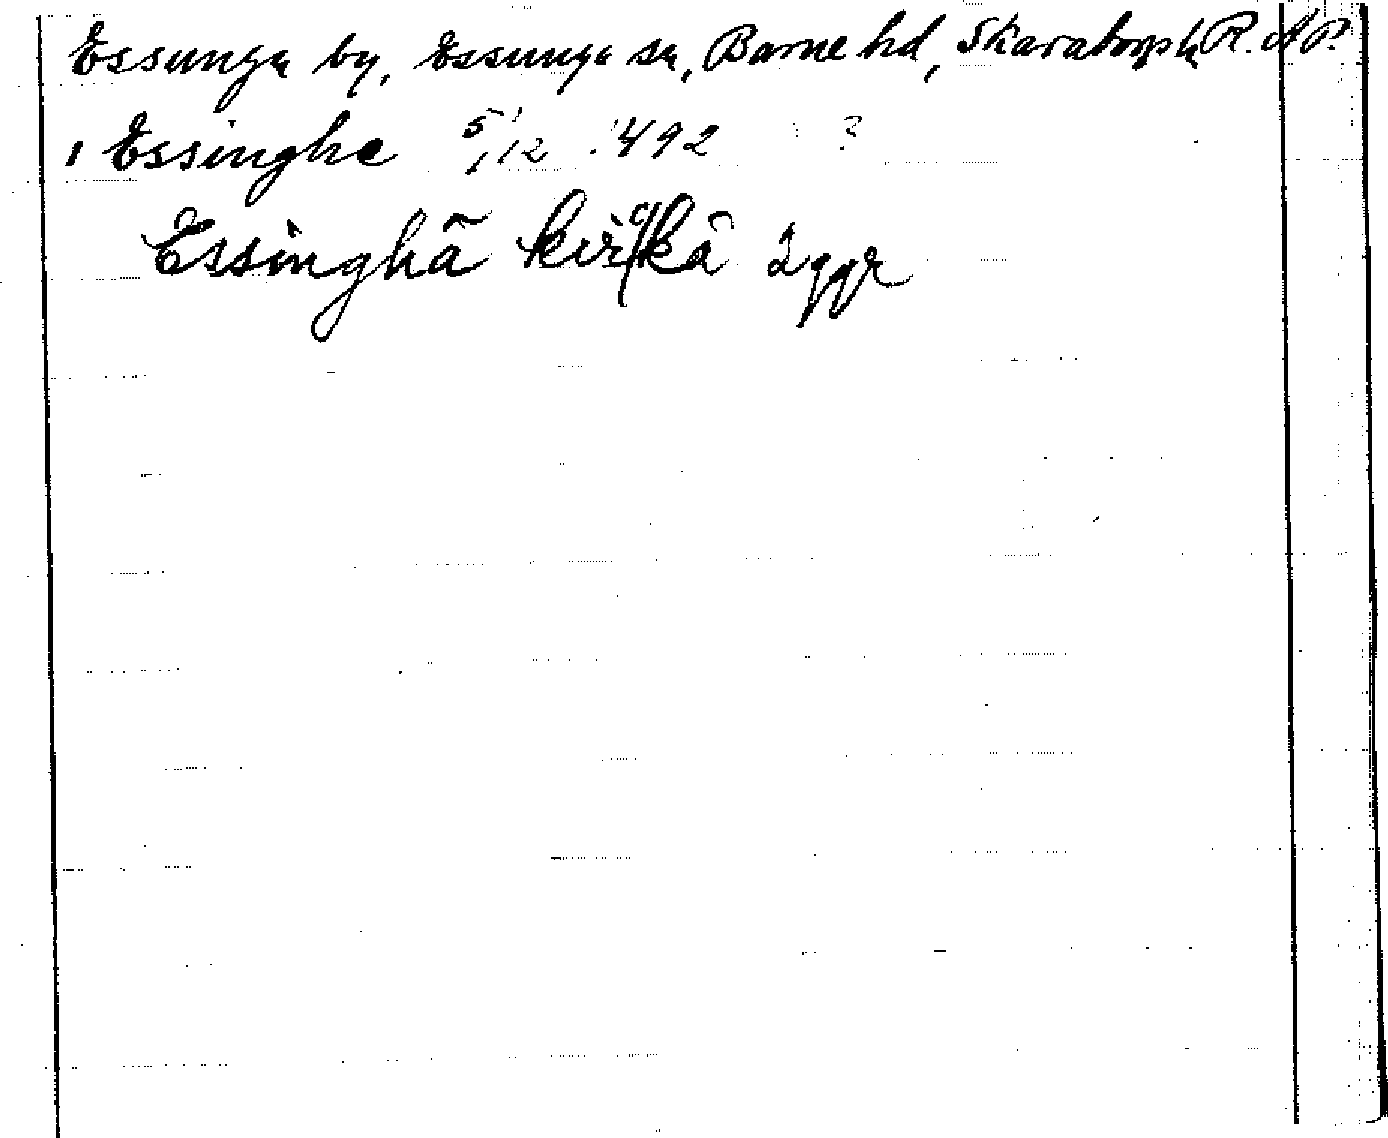 Essunga by, Essunga sn, Barne hd, Skaraborgs l, R.A.P.
i Essinghe 5/12 1492 ?
Essinghä kirkä 2 ggr